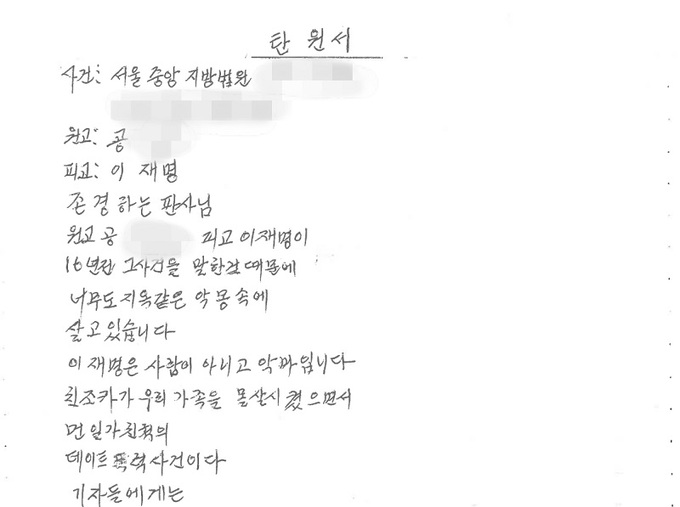 탄 원 서
사건: 서울 중앙 지방법원
원고: 공
피고: 이 재 명
존 경 하 는 판사님
원고 공 피고 이재명이
16년전 그사건을 말한것 때문에
너무도 지옥같은 악 몽 속에
살 고 있습니다
이 재명은 사람이 아니고 악마입니다
친조카가 우리 가족을 몰살시 켰 으면서
먼 일가친척의
데이트 폭력사건이다
기자들에게는